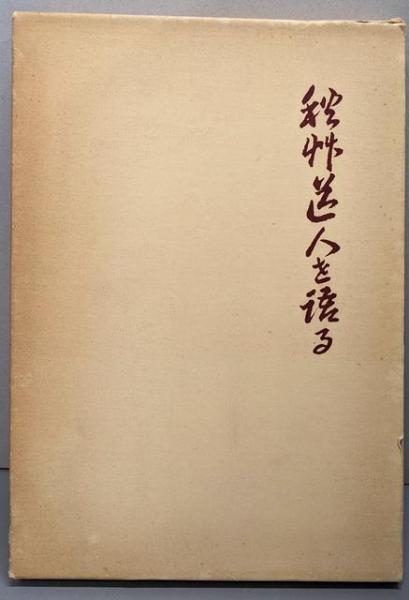 秋艸道人を語る